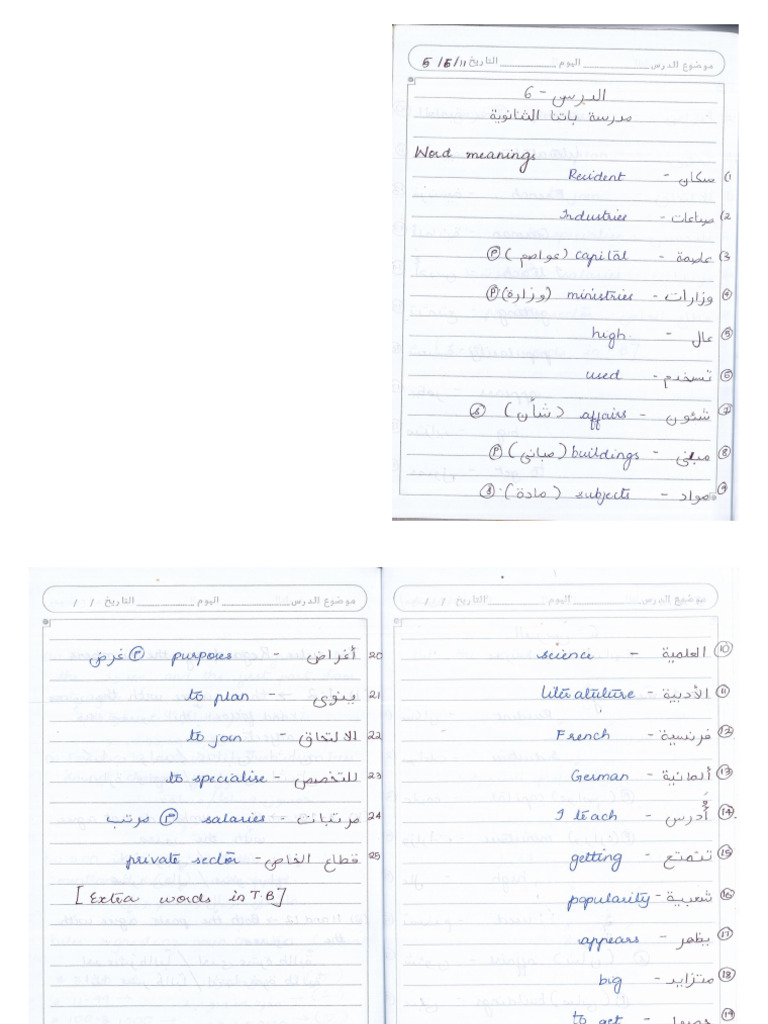 موضوع الدرس اليوم التاريخ 5/6/11
الدرس - 6
مدرسة باتنا الثانوية
Word meanings
1) سكان - Resident
2) صناعات - Industries
3) عاصمة - capital (عواصم) P
4) وزارات - ministries (وزارة) P
5) عال - high
6) تسخدم - used
7) شئون - affairs (شأن) S
8) مبنى - buildings (مبانى) P
9) مواد - subjects (مادة) S
موضوع الدرس اليوم التاريخ / /
10) العلمية - science
11) الأدبية - literature
12) فرنسية - French
13) ألمانية - German
14) أُدرس - I teach
15) تتمتع - getting
16) شعبية - popularity
17) يظهر - appears
18) متزايد - big
19 to get
موضوع الدرس اليوم التاريخ / /
20 أغراض - purposes غرض
21 ينوى - to plan
22 الالتحاق - to join
23 للتخصص - to specialise
24 مرتبات - salaries مرتب
25 قطاع الخاص - private sector
[Extra words in T.B]